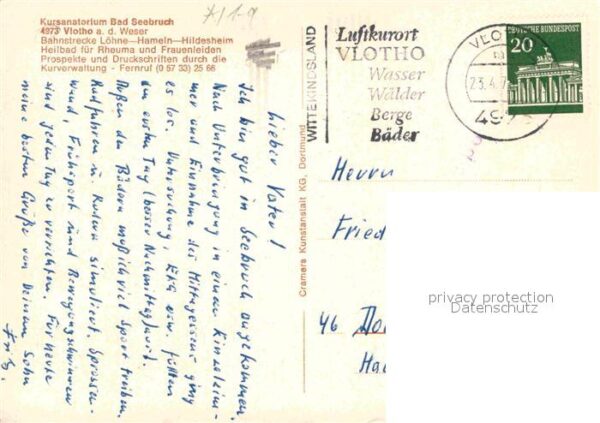 Kursanatorium Bad Seebruch
4973 Vlotho a. d. Weser
Bahnstrecke Löhne—Hameln—Hildesheim
Heilbad für Rheuma und Frauenleiden
Prospekte und Druckschriften durch die
Kurverwaltung - Fernruf (0 57 33) 25 66
Lieber Vater!
Ich bin gut in Seebruch angekommen.
Nach Unterbringung in einem Einzelzim-
mer und Einnahme des Mittagessens ging
es los. Untersuchung, EKG usw. füllten
den ersten Tag (besser Nachmittag) aus.
Außer den Bädern muß ich viel Sport treiben.
Radfahren u. Rudern simuliert, Sprossen-
wand, Frühsport und Bewegungsschwimmen
sind jeden Tag zu verrichten. Für heute
meine besten Grüße von Deinem Sohn
Cramers Kunstanstalt KG, Dortmund
WITTEKINDSLAND
Luftkurort
VLOTHO
Wasser
Wälder
Berge
Bäder
VLOTHO
23.4.7
DEUTSCHE BUNDESPOST
20
Herrn
Fried
46 Do
Ha
privacy protection
Datenschutz